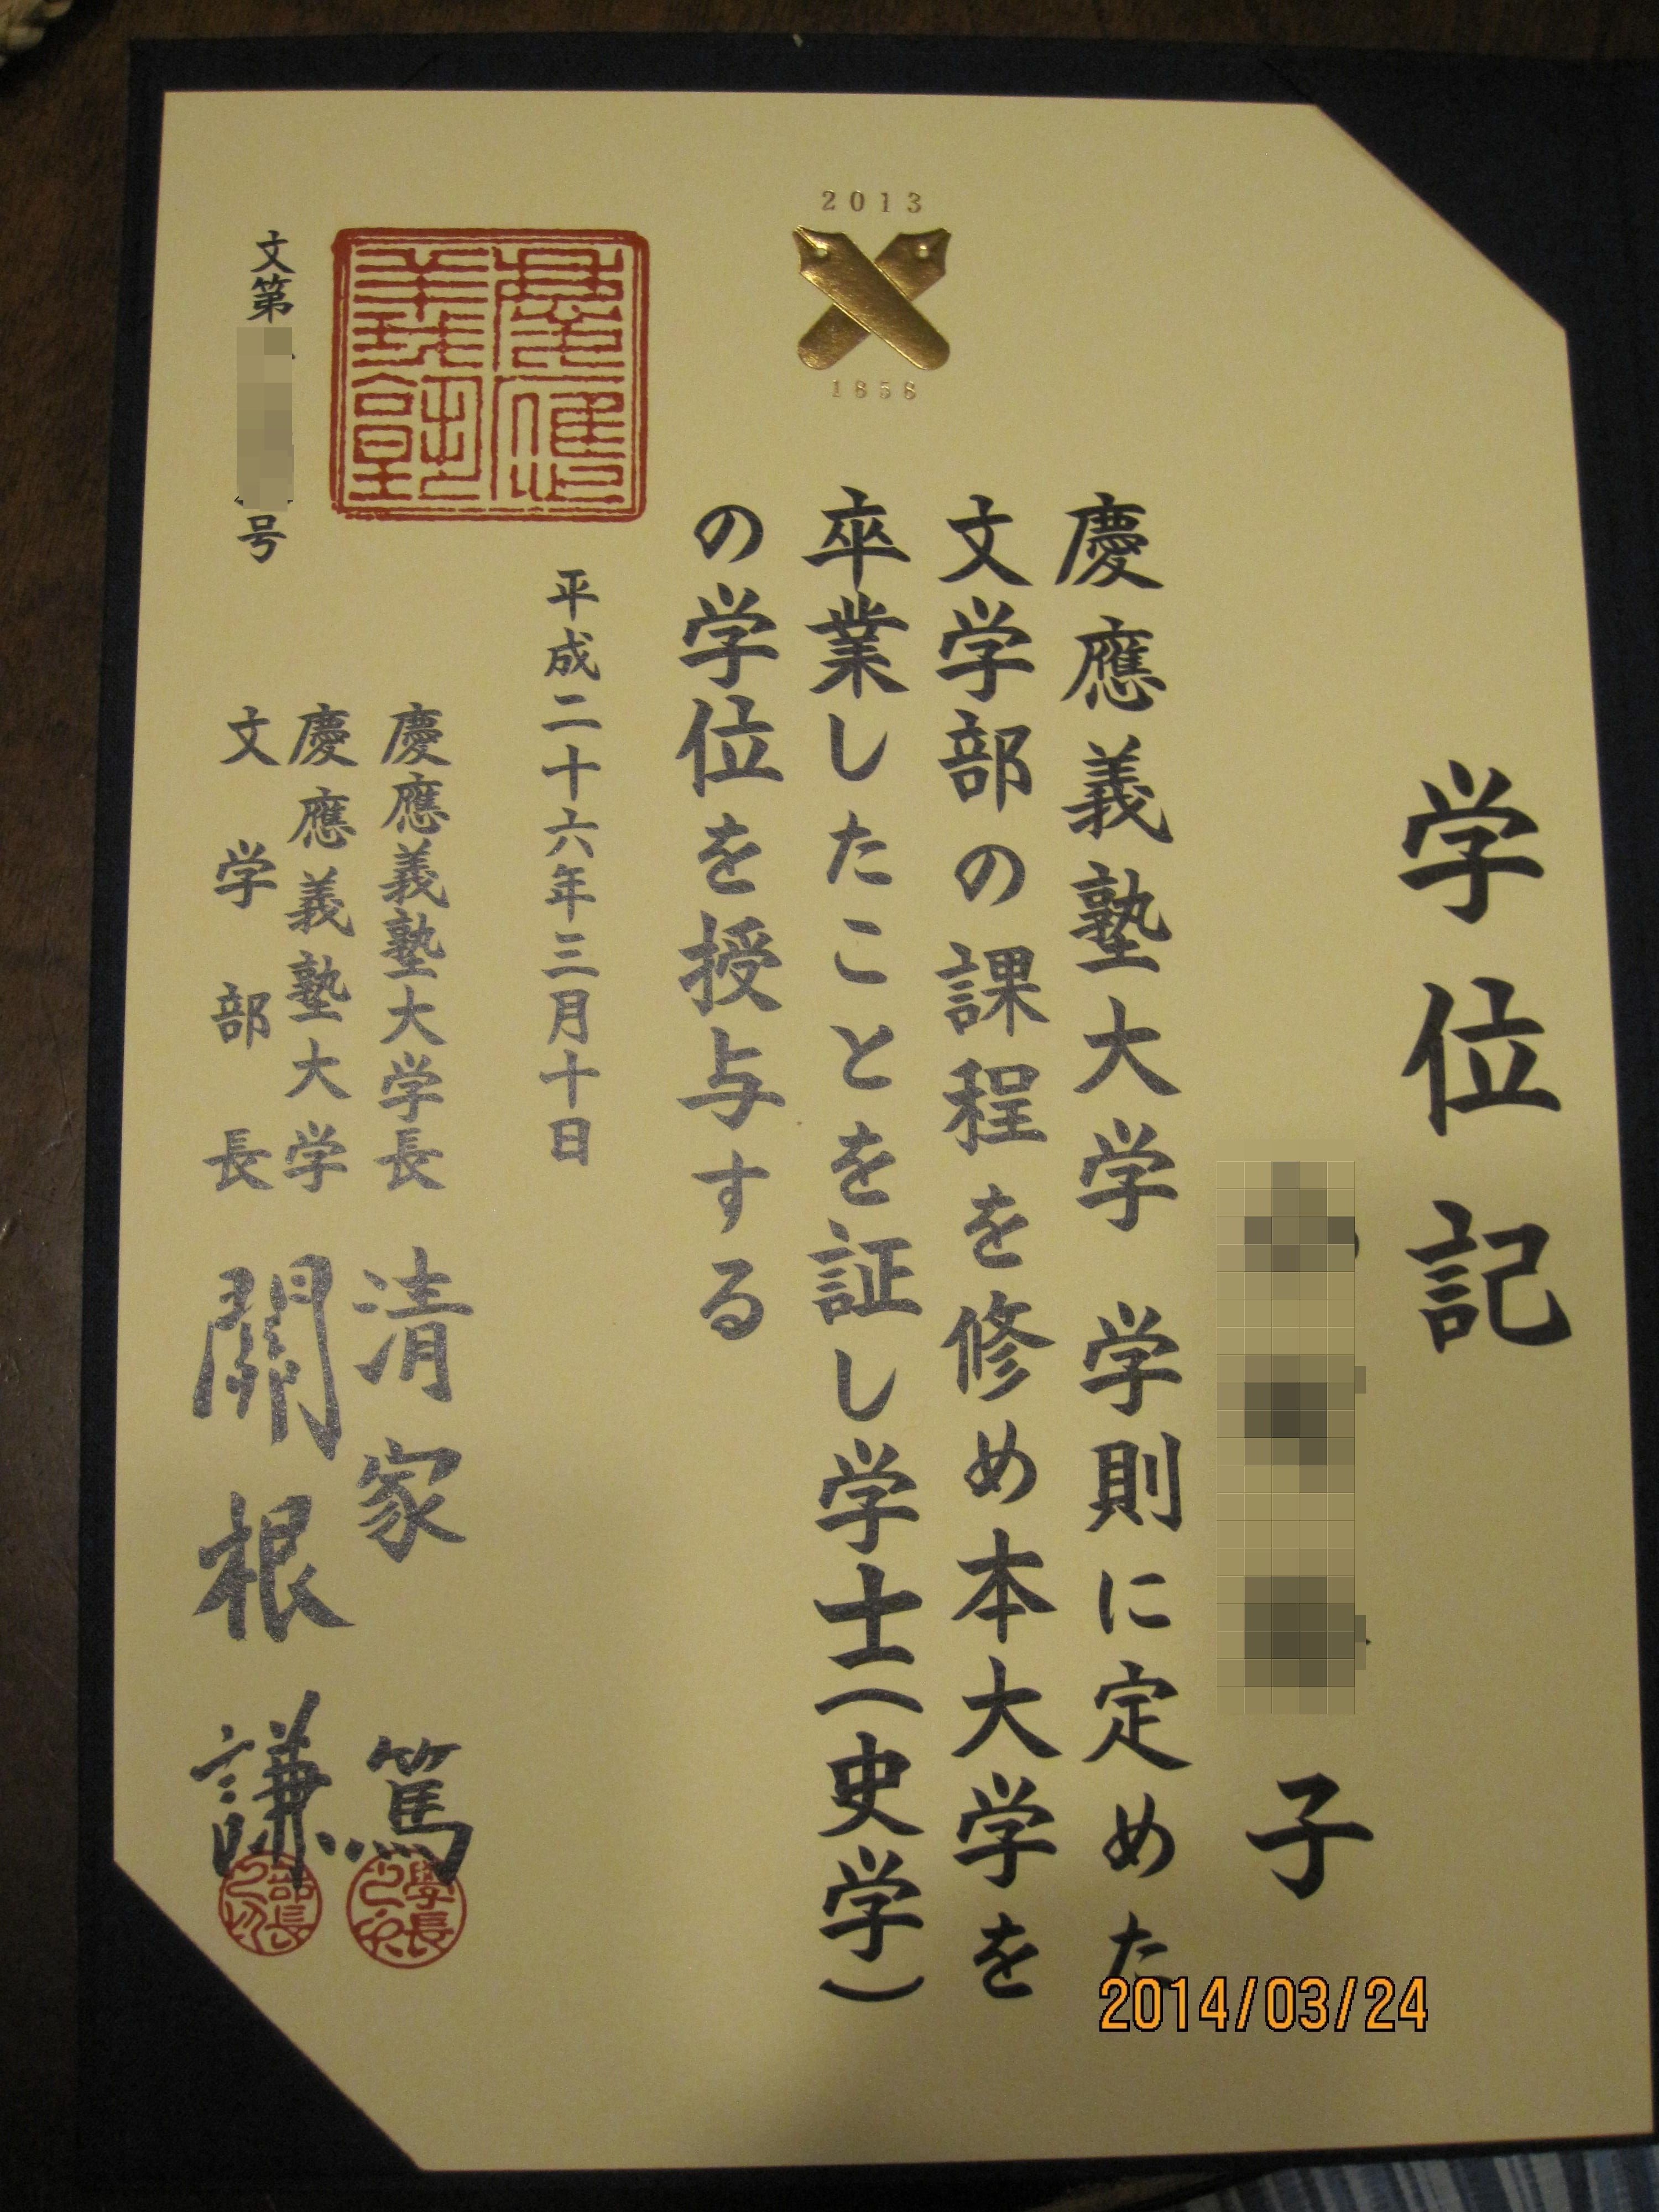 学位記
子
慶應義塾大学 学則に定めた
文学部の課程を修め本大学を
卒業したことを証し学士(史学)
の学位を授与する
平成二十六年三月十日
慶應義塾大学長 清家 篤
慶應義塾大学
文学部長 關根 謙
文第
号
2013
1858
慶應義塾
學長
部長
2014/03/24